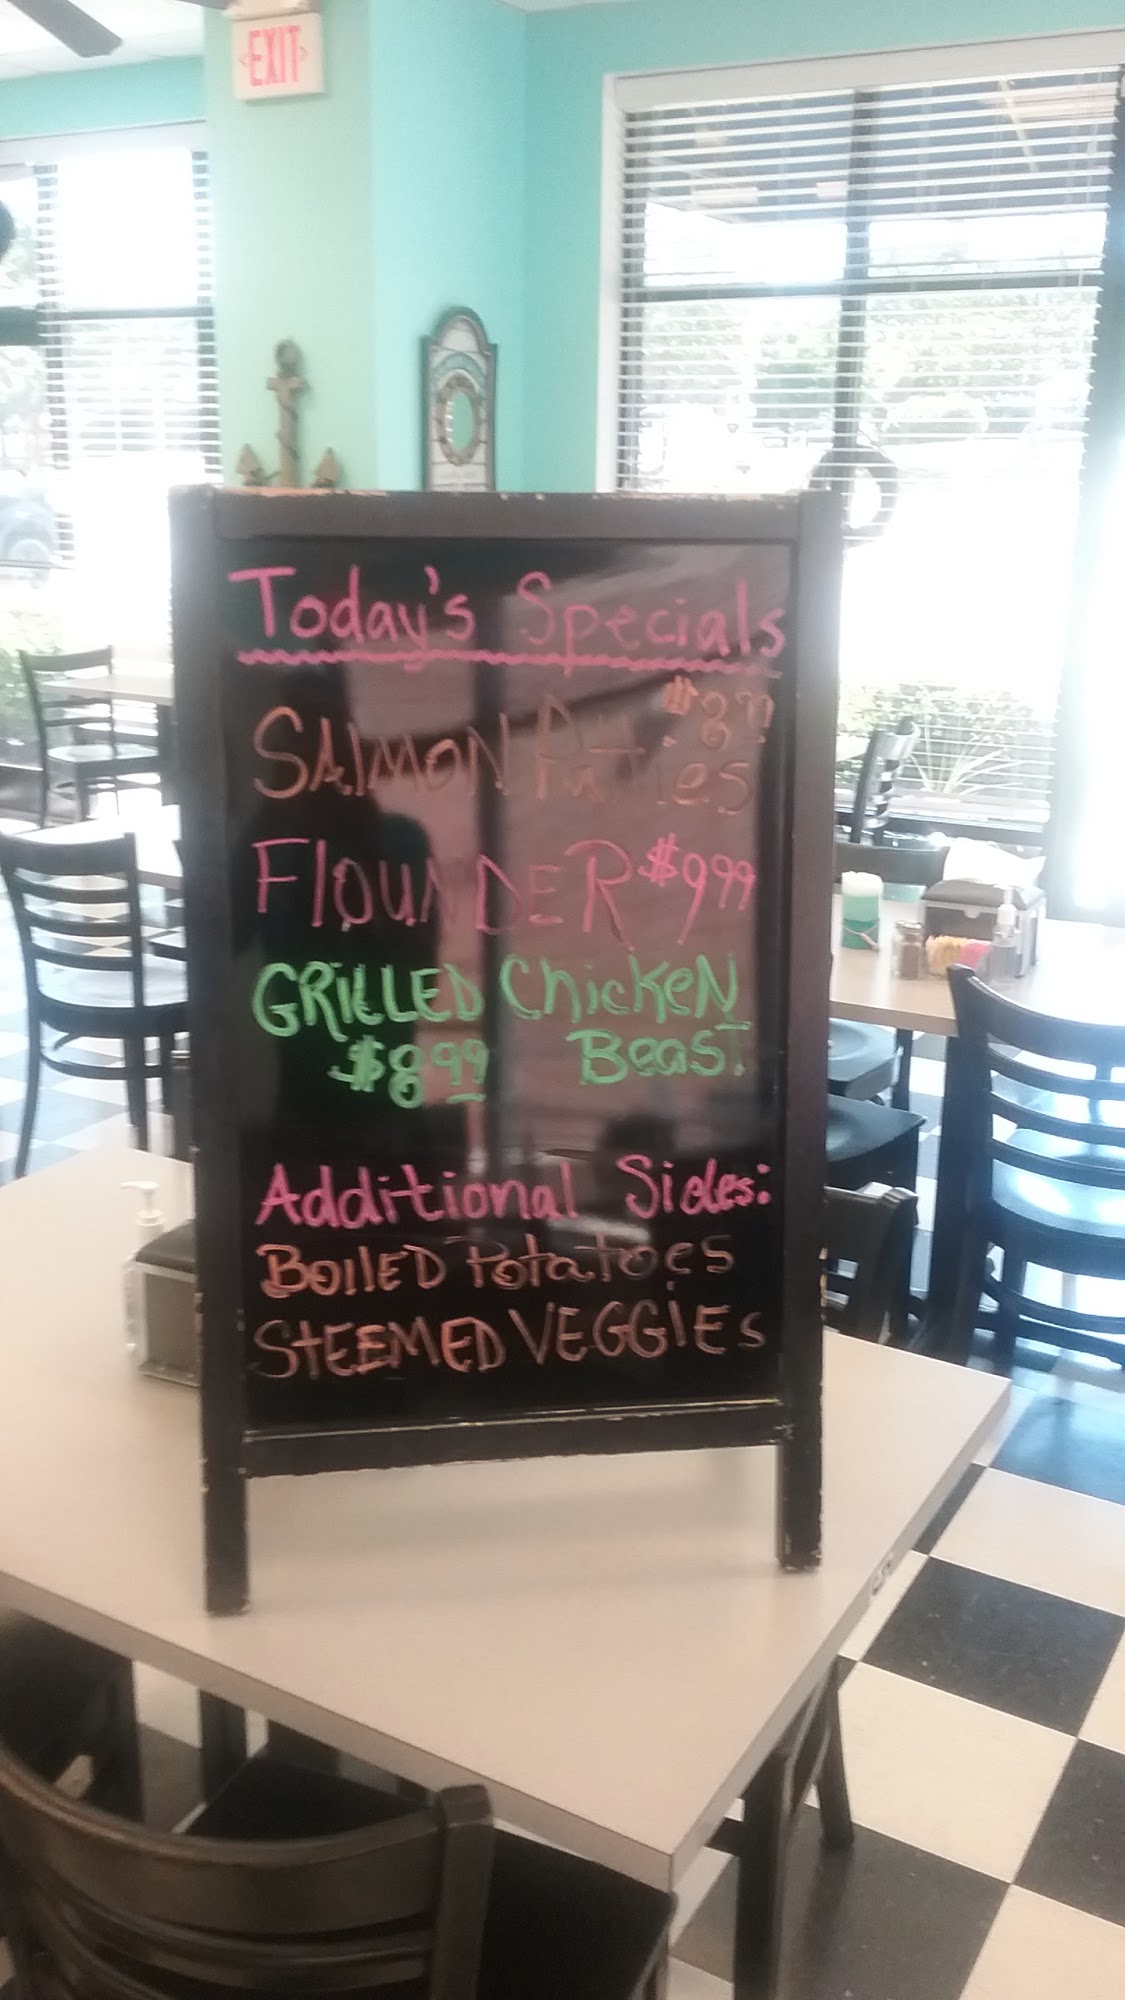 EXIT
Today's Specials
SAlMON Patties $8.99
FlOUNDER $9.99
GRILLED ChickeN
$8.99 Beast
Additional Sides:
BOilED Potatoes
STEEMED VEGGIEs